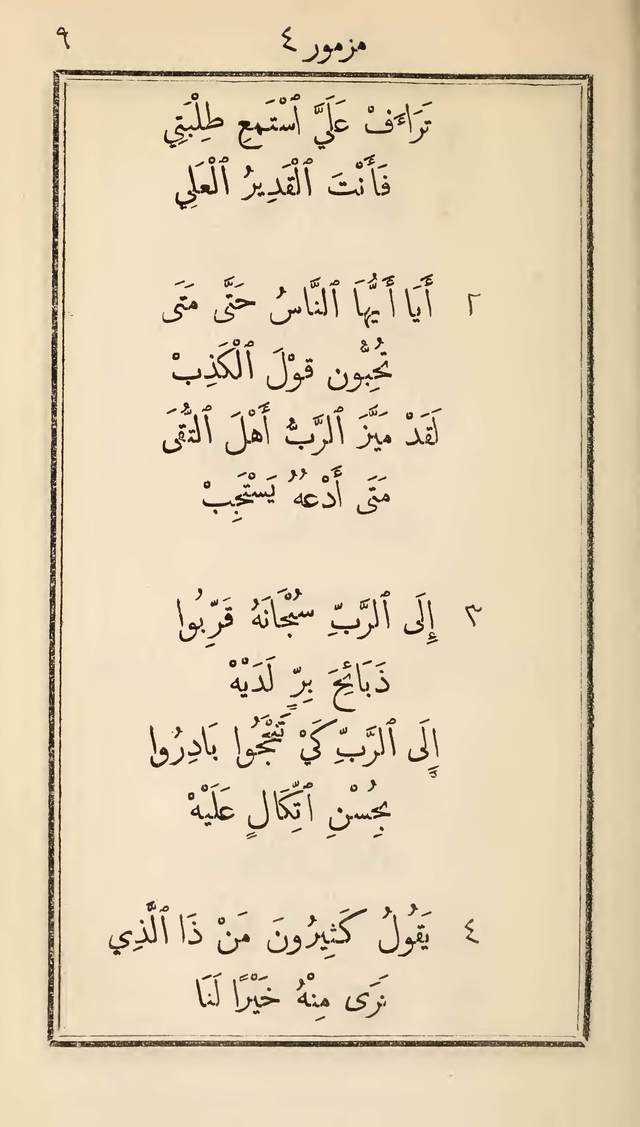 مزمور ٤ ٩
تَرَاءَفْ عَلَيَّ ٱسْتَمِعِ طِلْبَتِي
فَأَنْتَ ٱلْقَدِيرُ ٱلْعَلِي
٢ أَيَا أَيُّهَا ٱلنَّاسُ حَتَّى مَتَى
تُحِبُّون قوْلَ ٱلْكَذِبْ
لَقَدْ مَيَّزَ ٱلرَّبُّ أَهْلَ ٱلتُّقَى
مَتَى أَدْعهُ يَسْتَجِبْ
٣ إِلَى ٱلرَّبِّ سُبْحَانَهُ قَرِّبُوا
ذَبَائِحَ بِرٍّ لَدَيْهْ
إِلَى ٱلرَّبِّ كَيْ تَنْجَحُوا بَادِرُوا
بِحُسْنِ ٱتِّكَالٍ عَلَيْهْ
٤ يَقُولُ كَثِيرُونَ مَنْ ذَا ٱلَّذِي
نَرَى مِنْهُ خَيْرًا لَنَا